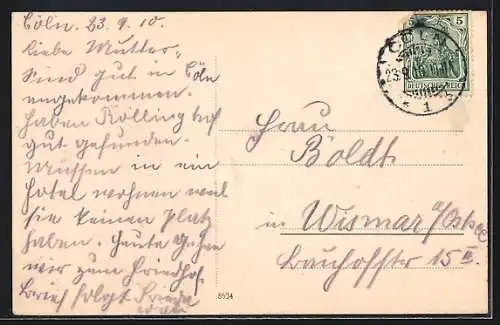 Cöln. 23.9.10.
Liebe Mutter.
Sind gut in Cöln
angekommen.
Haben Rölling hof
gut gefunden.
Müssen in ein
Hotel wohnen weil
sie keinen Platz
haben. Heute gehen
wir zum Friedhof
Brief folgt Frieda
5
CÖLN
23.9.10
DEUTSCHES REICH
* 1
Frau
Boldt
in Wismar a/Ostsee
Bauhofstr 15 II.
8534